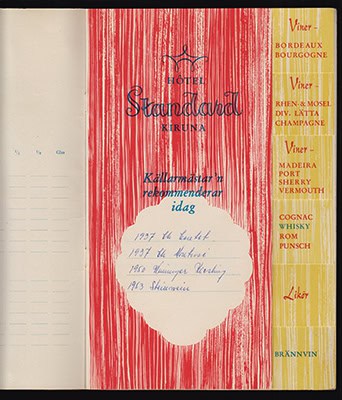 HÔTEL
Standard
KIRUNA
Källarmästar'n
rekommenderar
idag
1937
1937
1950
1953 Steinwein
Viner-
BORDEAUX
BOURGOGNE
Viner-
RHEN- & MOSEL
DIV. LÄTTA
CHAMPAGNE
Viner-
MADEIRA
PORT
SHERRY
VERMOUTH
COGNAC
WHISKY
ROM
PUNSCH
Likör
BRÄNNVIN